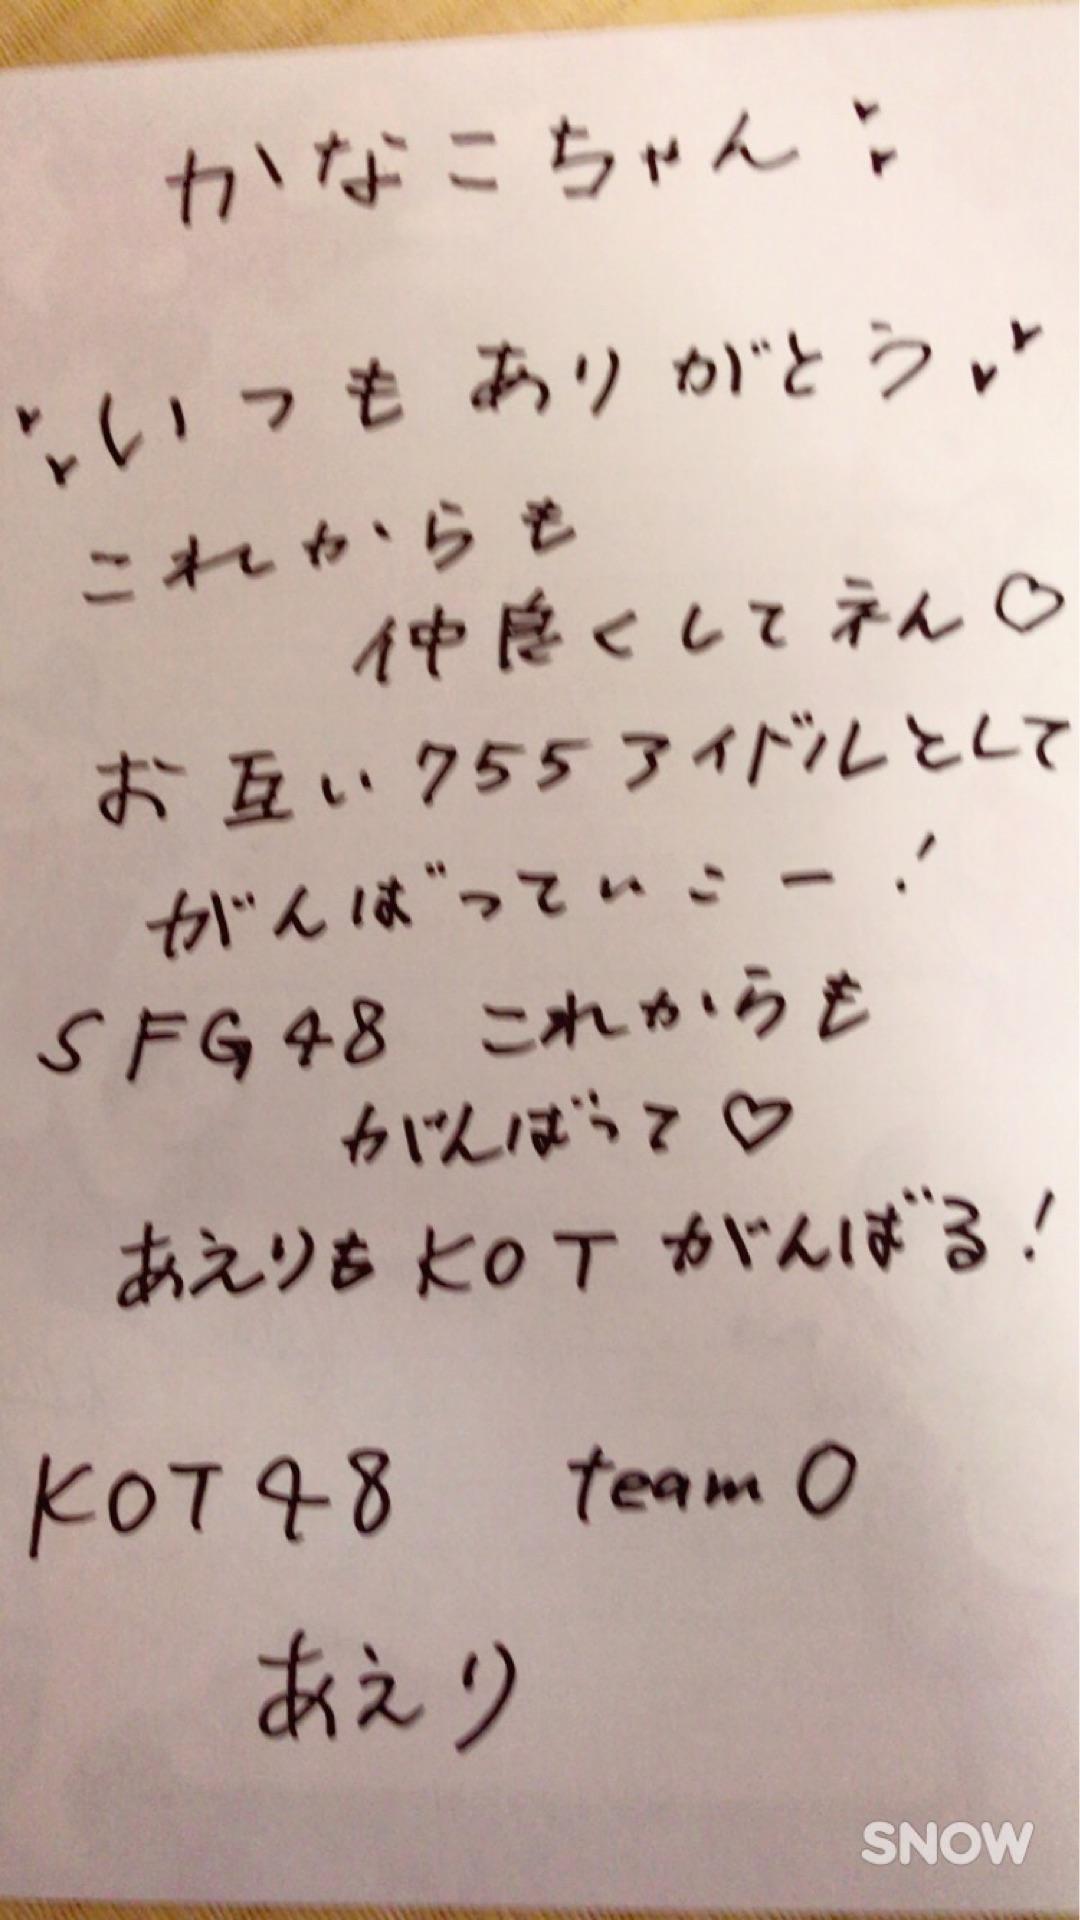 かなこちゃん
いつもありがとう
これからも
仲良くしてネん♡
お互い755アイドルとして
がんばっていこー!
SFG48 これからも
がんばって♡
あえりもKOTがんばる!
KOT48 teamO
あえり
SNOW